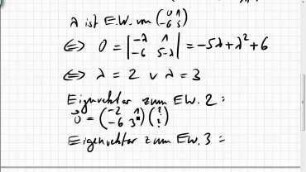 λ ist E.W. von (0 1 / -6 5)
⇔ 0 = |-λ 1 / -6 5-λ| = -5λ+λ²+6
⇔ λ = 2 ∨ λ = 3
Eigenvektor zum EW. 2 =
0⃗ = (-2 1 / -6 3)(1 / 2)
Eigenvektor zum EW. 3 =